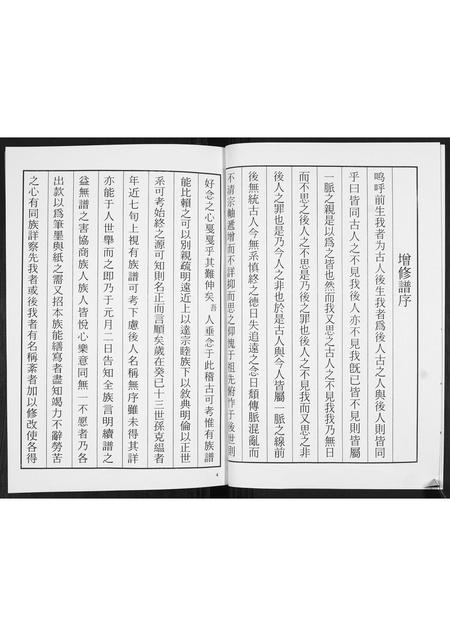 增修譜序
鸣呼前生我者为古人後生我者爲後人古之人與後人則皆同
乎曰皆同古人之不見我後人亦不見我既已皆不見則皆屬
一脈之親是以爲之皆也然而我又思之古人之不我我乃無日
而不思之後人之不思是乃後之罪也後人之不見我而又思之非
後人之罪也是乃今人之非也於是古人與今人皆屬一脈之線前
後無統古人今無系慎終之德日失追遠之念日頽傳脈混亂而
不清宗軸遞增而不詳抑而思之仰愧于祖先俯怍于後世則
好念之心戛戛乎其難伸矣吾人垂念于此稽古可考惟有族譜
能比賴之可以別親疏明遠近上以達宗睦族下以敘典明倫以正世
系可考始終之源可知則名正而言順矣歲在癸巳十三世孫克緼者
年近七旬上視有族譜可考下慮後人名稱無序雖未得其詳
亦能于人世舉而之即乃于元月二日告知全族言明續譜之
益無譜之害協商族人族人皆悅心樂意同無一不愿者乃各
出款以爲筆墨與紙之需又招本族能繕寫者盡知竭力不辭勞苦
之心有同族詳察先我者或後我者有名稱紊者加以修改使各得
4